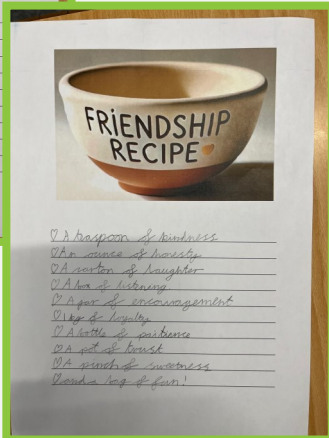 FRiENDSHIP
RECIPE
A teaspoon of kindness
An ounce of honesty
A carton of laughter
A box of listening
A jar of encouragement
1 kg of loyalty
A bottle of patience
A pot of trust
A pinch of sweetness
and a bag of fun!